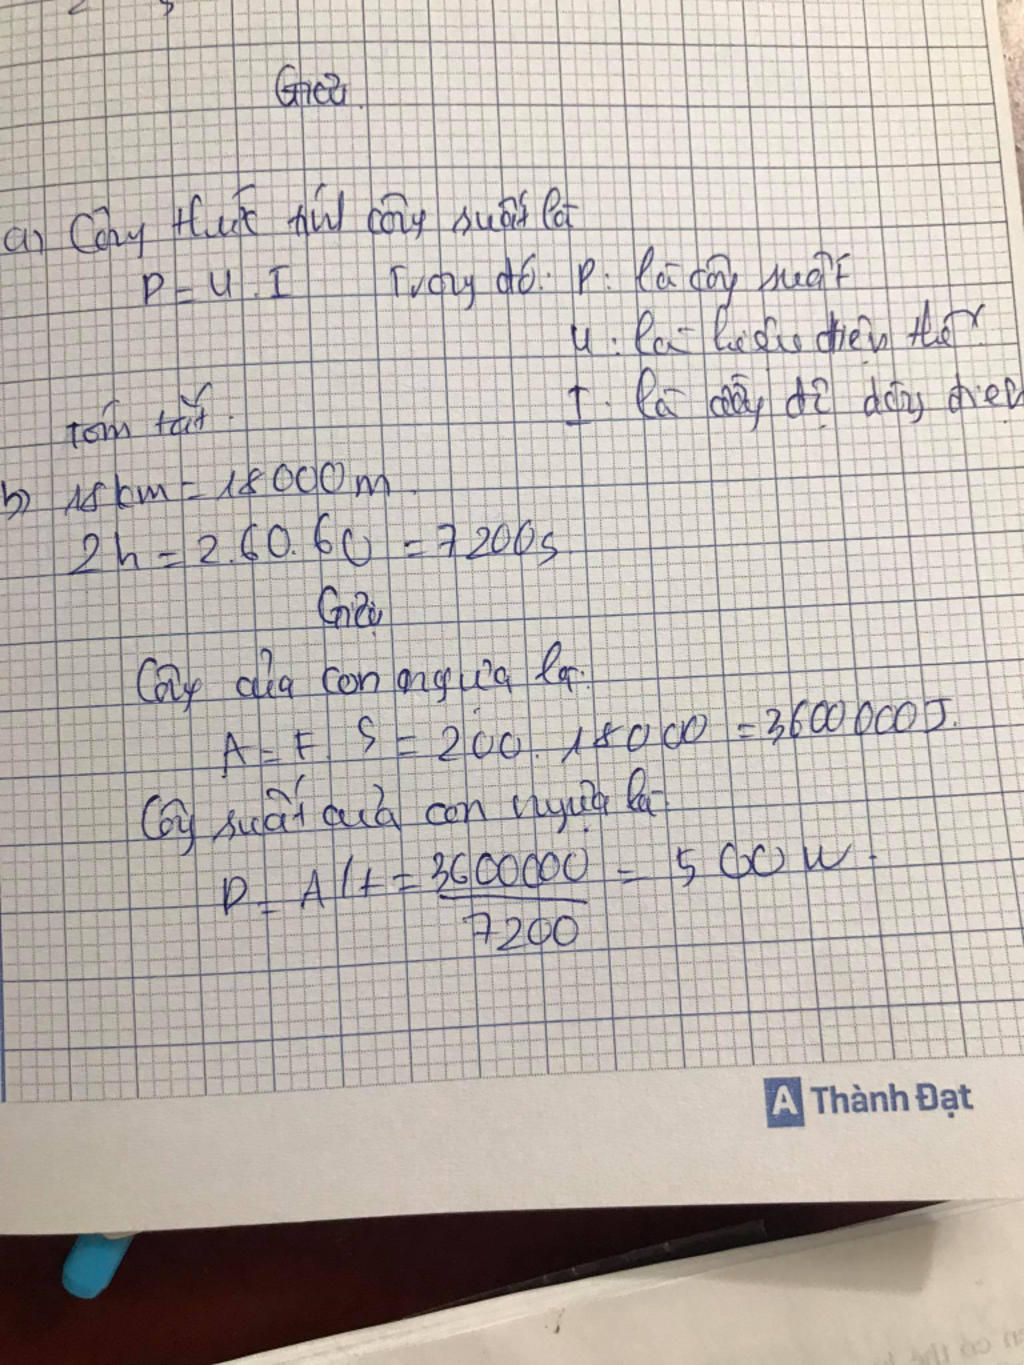 Giải
a) Công thức tính công suất là
P = U . I Trong đó: P: là công suất
U: là hiệu điện thế
I: là cường độ dòng điện
tóm tắt.
b) 18km = 18000m.
2h = 2.60.60 = 7200s
Giải
Công của con ngựa là:
A = F. S = 200. 18000 = 3600000J.
Công suất của con ngựa là
P = A/t = 3600000 = 500W.
7200
A Thành Đạt